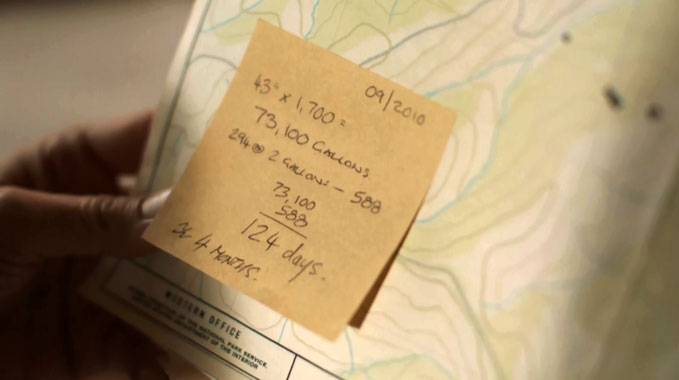 09/2010
43" x 1,700 =
73,100 GALLONS
294 @ 2 GALLONS – 588
73,100
588
124 days.
4 MONTHS.
OFFICE
OF THE NATIONAL PARK SERVICE,
DEPARTMENT OF THE INTERIOR